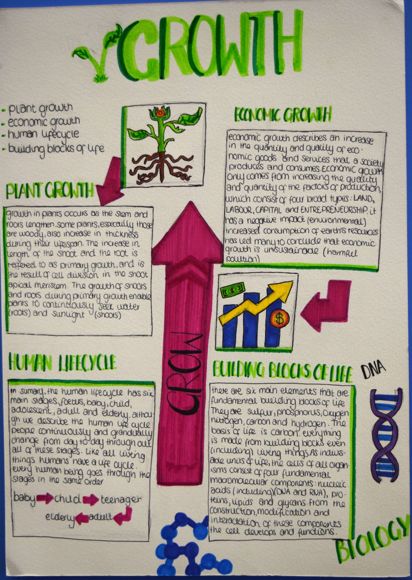 GROWTH
- plant growth
- economic growth
- human lifecycle
- building blocks of life
PLANT GROWTH
growth in plants occurs as the stem and
roots lengthen. some plants, especially those
are woody, also increase in thickness
during their lifespan. The increase in
length of the shoot and the root is
reffered to as primary growth, and is
the result of cell division in the shoot
apical meristem. The growth of shoots
and roots during primary growth enable
plants to continuously seek water
(roots) and sunlight (shoots)
ECONOMIC GROWTH
economic growth describes an increase
in the quantity and quality of eco-
nomic goods and services that a society
produces and consumes. economic growth
only comes from increasing the quality
and quantity of the factors of production,
which consist of four broad types: LAND,
LABOUR, CAPITAL and ENTREPRENEURSHIP. it
has a negative impact (environmental)
increased consumption of earth's resources
has led many to conclude that economic
growth is unsustainable (harmful
pollution)
GROW
$
HUMAN LIFECYCLE
in sumary, the human lifecycle has six
main stages, foetus, baby, child,
adolescent, adult and elderly. althou
gh we describe the human life cycle
people continuously and grandually
change from day to day through out
all of these stages. Like all living
things humans have a life cycle.
every human being goes through the
stages in the same order
baby child teenager
elderly adult
BUILDING BLOCKS OF LIFE
there are six main elements that are
fundamental building blocks of life
They are sulfur, phosphorus, oxygen
nitrogen, carbon and hydrogen. The
basis of life is carbon! everything
is made from building blocks even
(including) living things. As individu-
units of life, the cells of all organ
isms consist of four fundamental
macromolecular components: nucleic
acids (including DNA and RNA), pro-
teins, lipids and glycans. From the
construction, modification and
interaction of these components
the cell develops and functions.
DNA
BIOLOGY